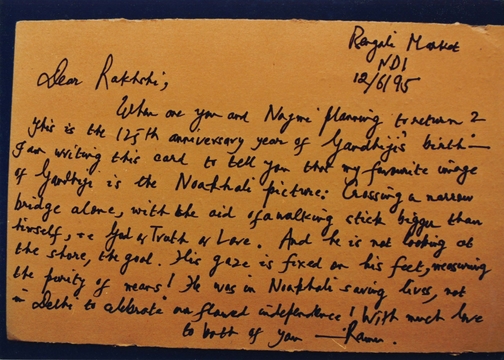 Bengali Market
ND1
12/6/95
Dear Rakhshi,
When are you and Najmi planning to return?
This is the 125th anniversary year of Gandhiji's birth—
I am writing this card to tell you that my favourite image
of Gandhiji is the Noakhali picture: Crossing a narrow
bridge alone, with the aid of a walking stick bigger than
himself, i.e God or Truth or Love. And he is not looking at
the shore, the goal. His gaze is fixed on his feet, measuring
the purity of means! He was in Noakhali saving lives, not
in Delhi to celebrate our flawed independence! With much love
to both of you —